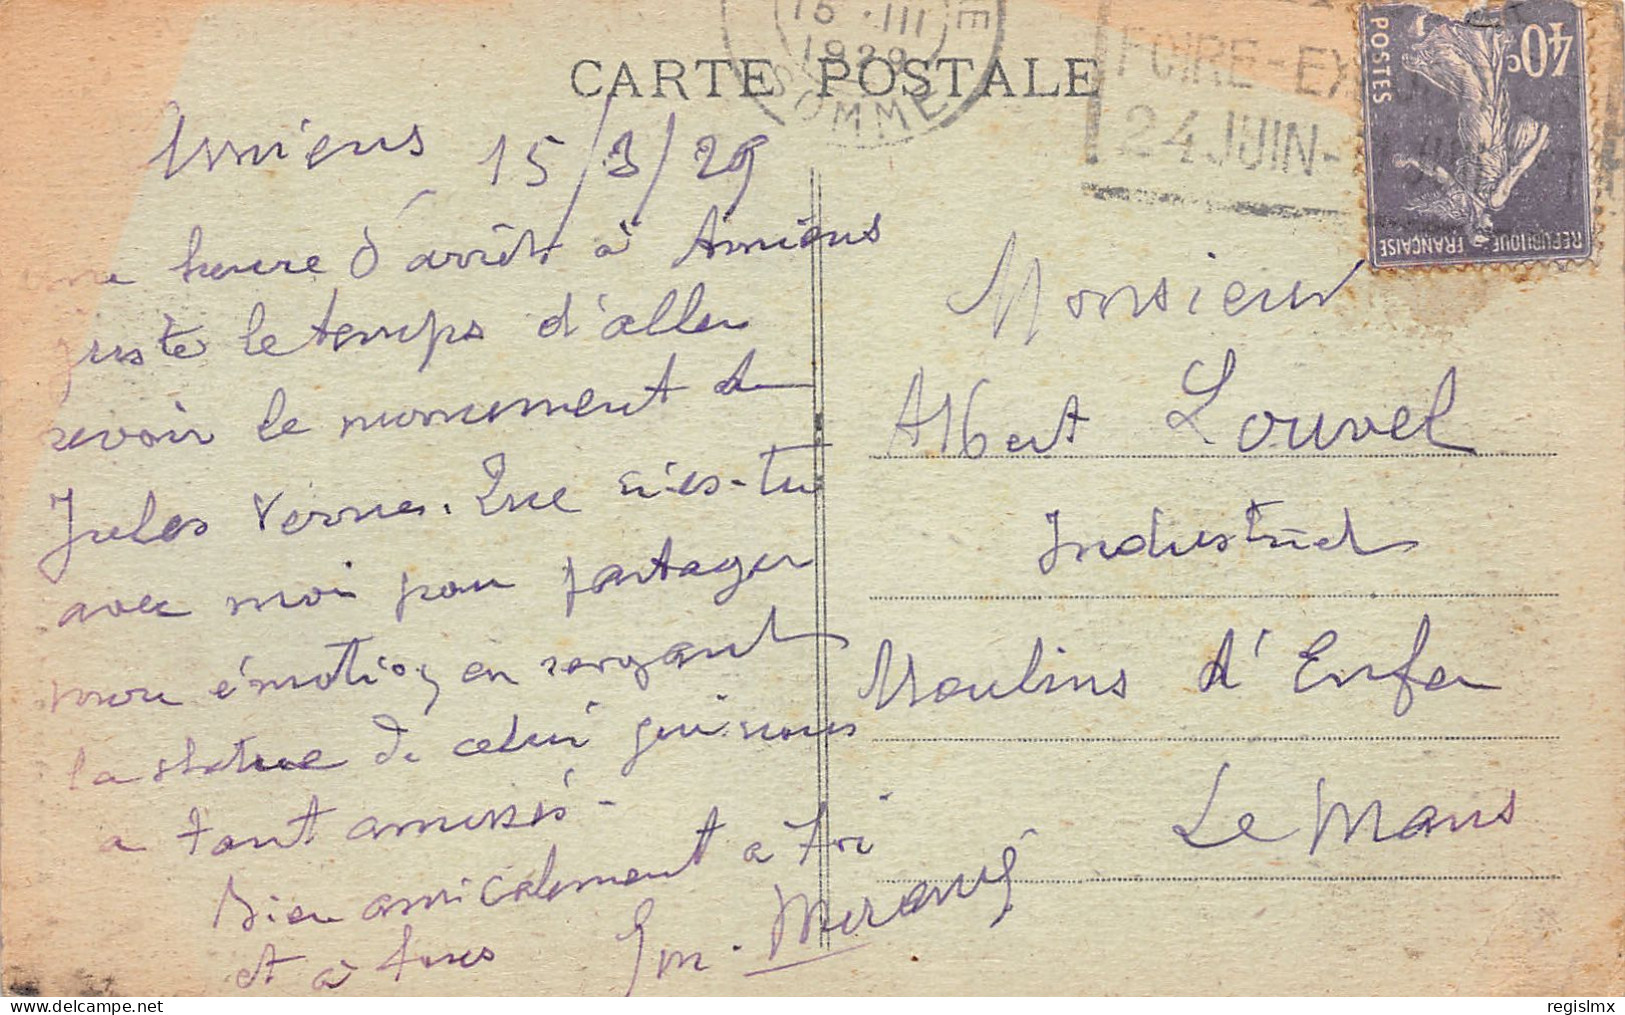 CARTE POSTALE
15 · III
1929
SOMME
E
FOIRE-EX
24 JUIN-
40c
POSTES
REPUBLIQUE FRANÇAISE
Amiens 15/3/29
une heure d'arrêt à Amiens
juste le temps d'aller
revoir le monument de
Jules Verne. Que n'es-tu
avec moi pour partager
mon émotion en songeant
la statue de celui qui nous
a tant amusés -
Bien amicalement à toi
et à tous
Monsieur
Albert Louvel
Industriel
Moulins d'Enfer
Le Mans
regislmx